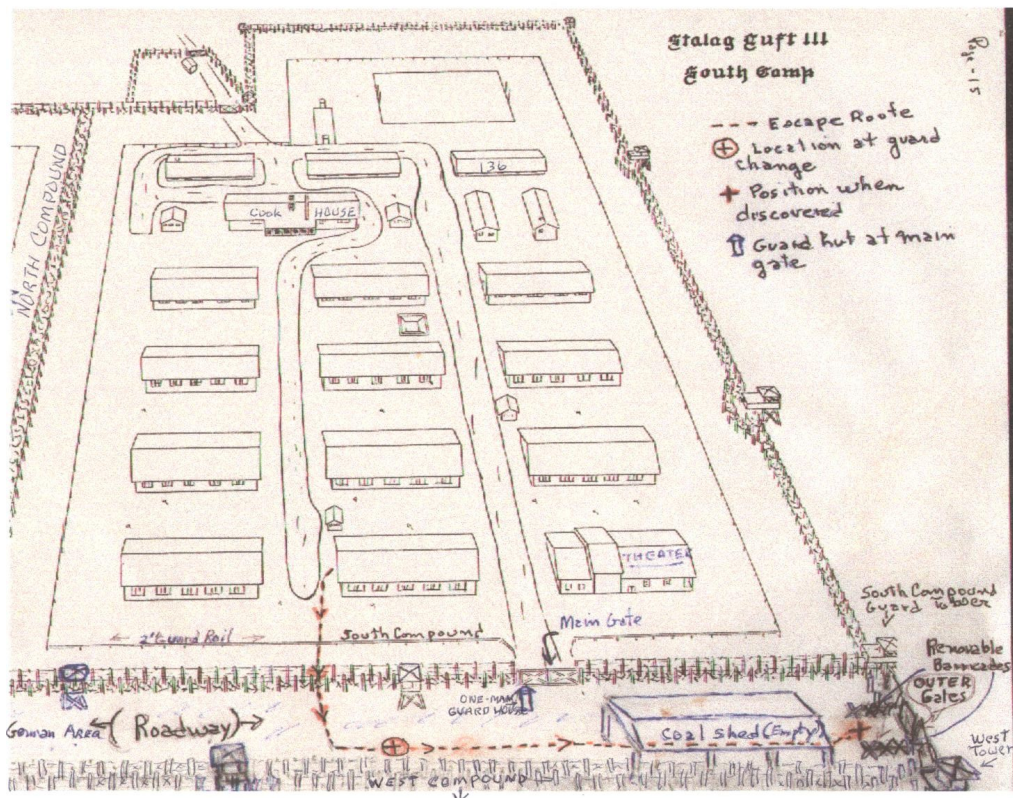 Stalag Luft III
South Camp
Escape Route
Location at guard
change
Position when
discovered
Guard hut at main
gate
NORTH COMPOUND
136
Cook HOUSE
THEATER
Main Gate
South Compound
2' Guard Rail
South Compound
Guard Tower
Removable
Barricades
OUTER
Gates
West
Tower
ONE-MAN
GUARD HOUSE
German Area
(Roadway)
Coal shed (Empty)
WEST COMPOUND